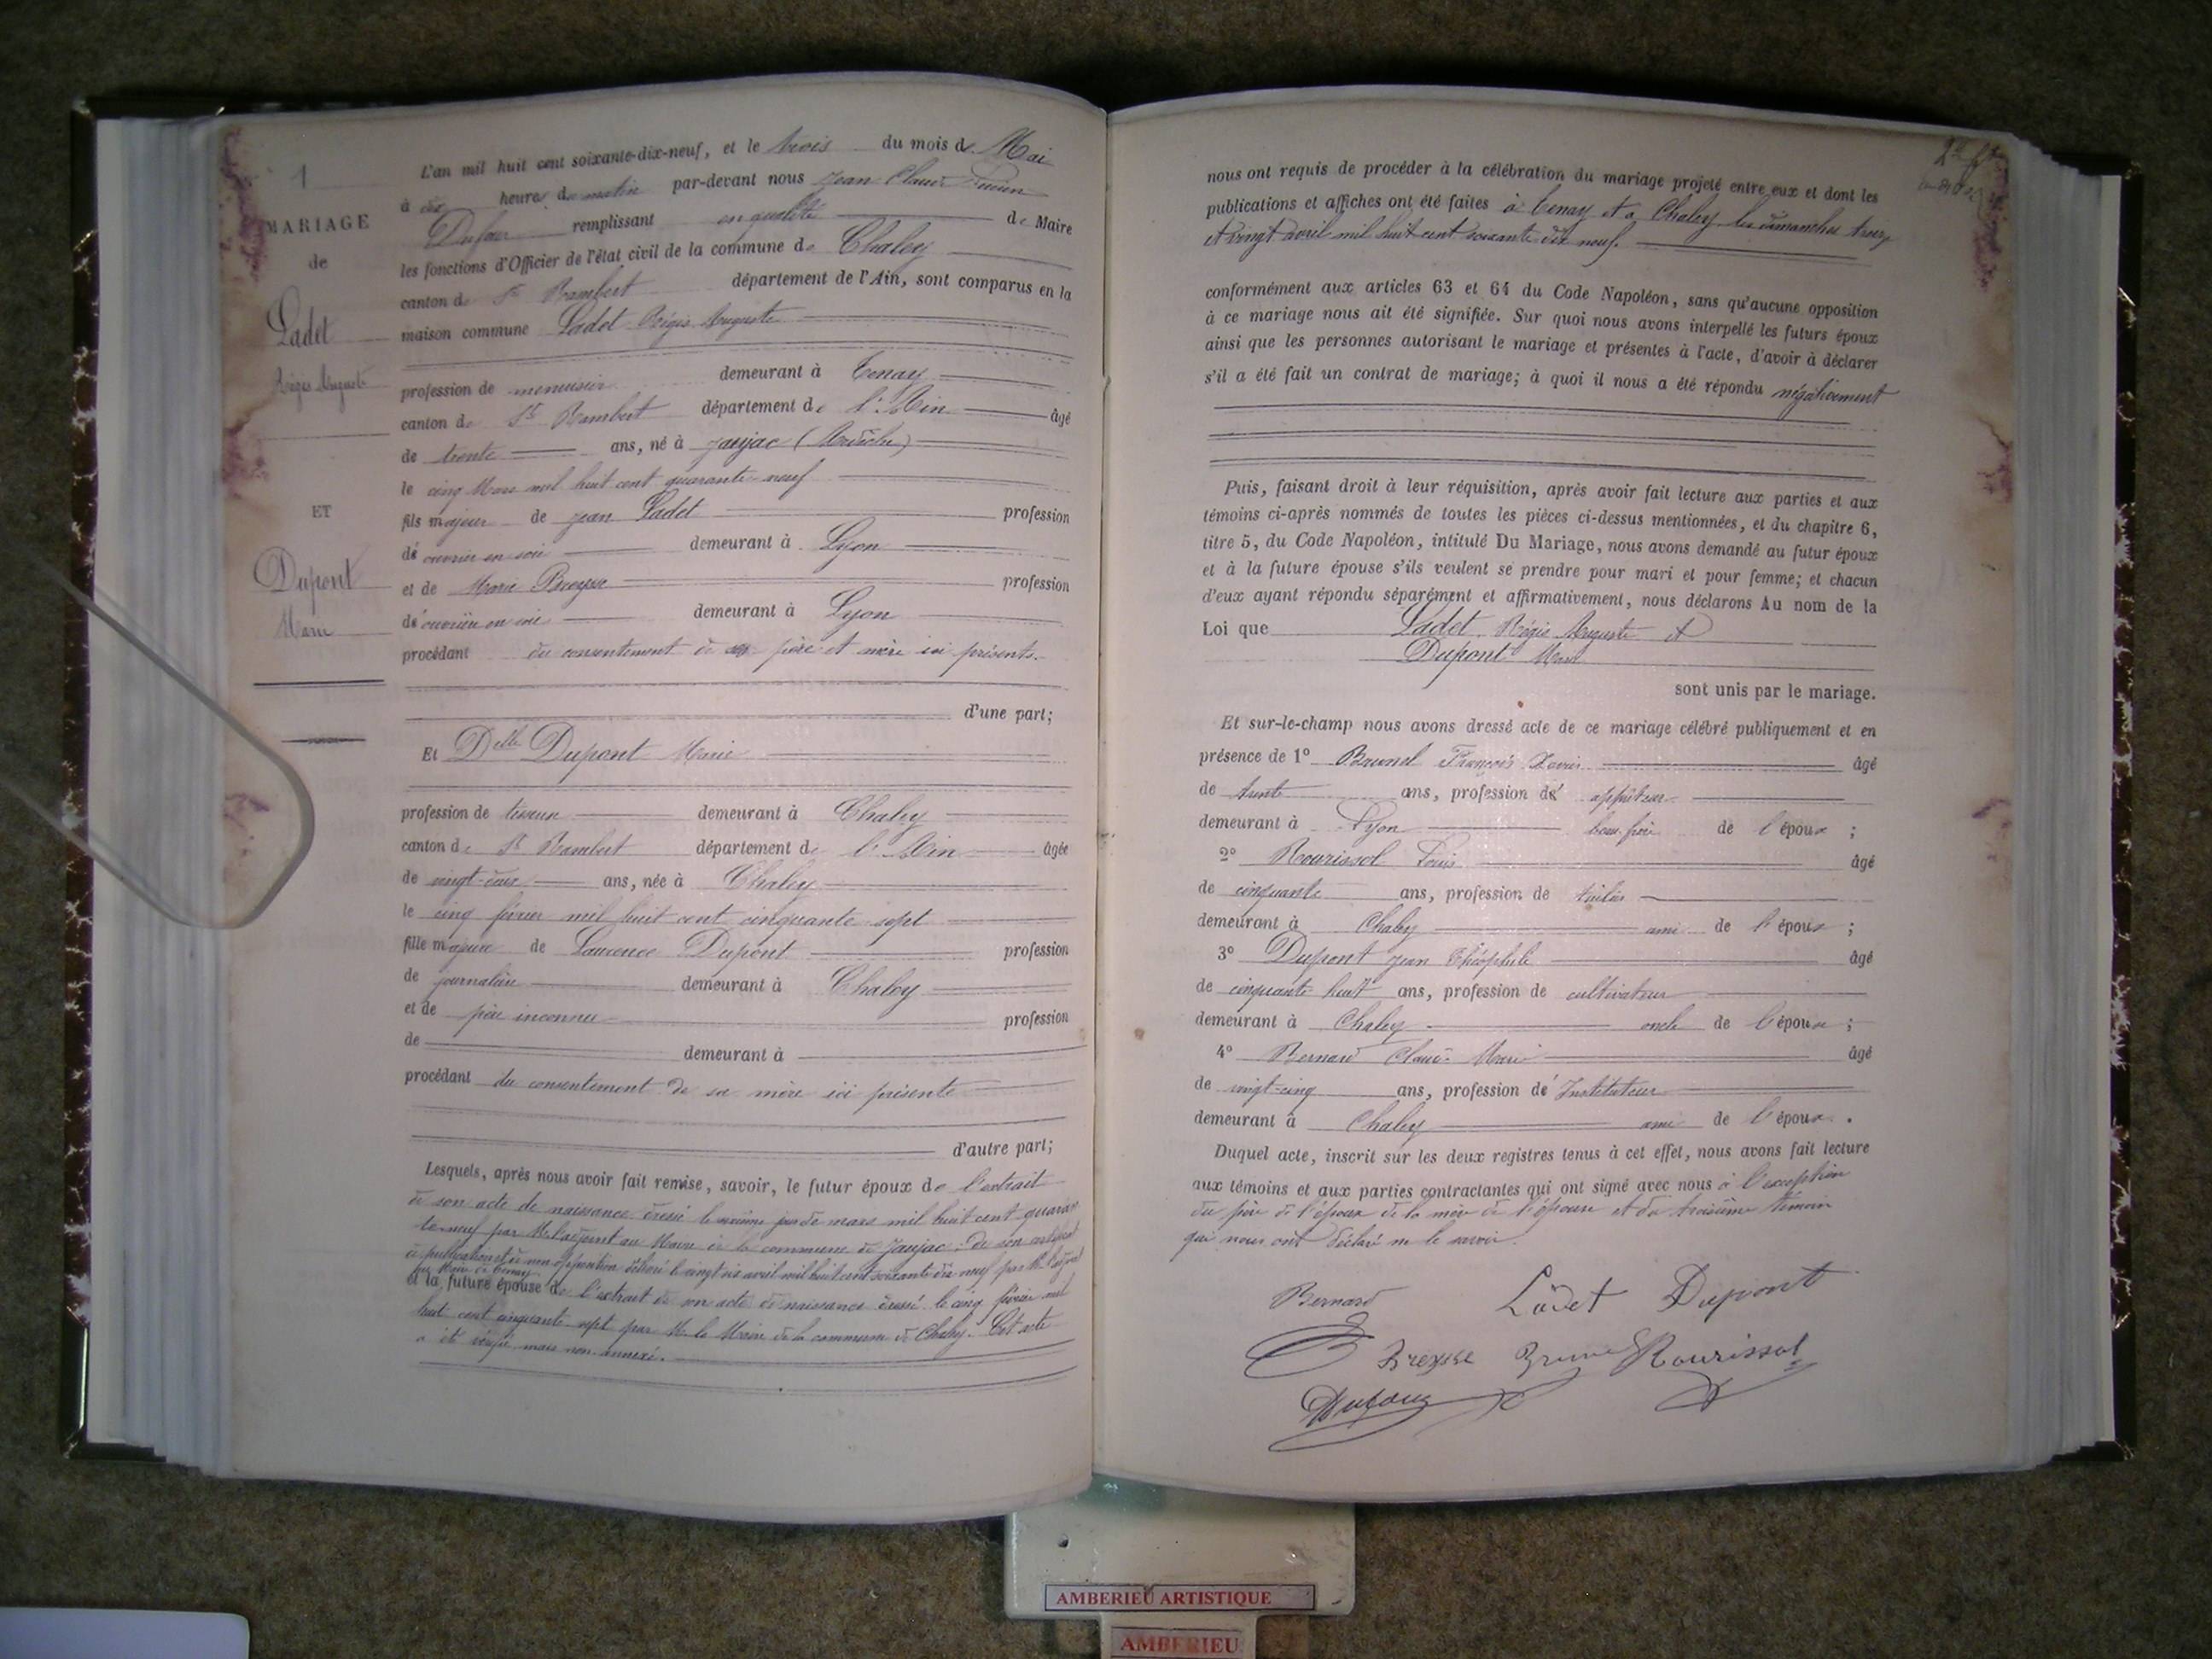 1
MARIAGE
de
Ladet
Régis Auguste
ET
Dupont
Marie
L'an mil huit cent soixante-dix-neuf, et le trois du mois de Mai
à dix heures du matin par-devant nous Jean Claude
Dufour remplissant en qualité de Maire
les fonctions d'Officier de l'état civil de la commune de Chaley
canton de St Rambert département de l'Ain, sont comparus en la
maison commune Ladet Régis Auguste
profession de menuisier demeurant à Tenay
canton de St Rambert département de l'Ain âgé
de trente ans, né à Jaujac (Ardèche)
le cinq Mars mil huit cent quarante-neuf
fils majeur de Jean Ladet profession
d'ouvrier en soie demeurant à Lyon
et de Marie Breysse profession
d'ouvrière en soie demeurant à Lyon
procédant du consentement de ses père et mère ici présents.
d'une part;
Et Delle Dupont Marie
profession de demeurant à Chaley
canton de St Rambert département de l'Ain âgée
de vingt-deux ans, née à Chaley
le cinq février mil huit cent cinquante sept
fille majeure de Laurence Dupont profession
de journalière demeurant à Chaley
et de père inconnu profession
de demeurant à
procédant du consentement de sa mère ici présente
d'autre part;
Lesquels, après nous avoir fait remise, savoir, le futur époux de l'extrait
de son acte de naissance dressé le jour de mars mil huit cent quaran
te-neuf par M. l'adjoint au Maire de la commune de Jaujac; de son certificat
de publication et de non opposition délivré le vingt six avril mil huit cent soixante dix neuf par M. l'adjoint
au Maire de Tenay
et la future épouse de l'extrait de son acte de naissance dressé le cinq février mil
huit cent cinquante sept par M. le Maire de la commune de Chaley. Cet acte
a été vérifié mais non annexé.
nous ont requis de procéder à la célébration du mariage projeté entre eux et dont les
publications et affiches ont été faites à Tenay et à Chaley les dimanches treize
et vingt avril mil huit cent soixante dix neuf.
conformément aux articles 63 et 64 du Code Napoléon, sans qu'aucune opposition
à ce mariage nous ait été signifiée. Sur quoi nous avons interpellé les futurs époux
ainsi que les personnes autorisant le mariage et présentes à l'acte, d'avoir à déclarer
s'il a été fait un contrat de mariage; à quoi il nous a été répondu négativement
Puis, faisant droit à leur réquisition, après avoir fait lecture aux parties et aux
témoins ci-après nommés de toutes les pièces ci-dessus mentionnées, et du chapitre 6,
titre 5, du Code Napoléon, intitulé Du Mariage, nous avons demandé au futur époux
et à la future épouse s'ils veulent se prendre pour mari et pour femme; et chacun
d'eux ayant répondu séparément et affirmativement, nous déclarons Au nom de la
Loi que Ladet Régis Auguste et
Dupont Marie
sont unis par le mariage.
Et sur-le-champ nous avons dressé acte de ce mariage célébré publiquement et en
présence de 1° Brunel François Xavier âgé
de trente ans, profession d' appréteur
demeurant à Lyon beau frère de l'époux ;
2° Rourissol Louis âgé
de cinquante ans, profession de
demeurant à Chaley ami de l'époux ;
3° Dupont Jean Théophile âgé
de cinquante huit ans, profession de cultivateur
demeurant à Chaley oncle de l'épouse ;
4° Bernard Claude Marie âgé
de vingt-cinq ans, profession d'Instituteur
demeurant à Chaley ami de l'époux .
Duquel acte, inscrit sur les deux registres tenus à cet effet, nous avons fait lecture
aux témoins et aux parties contractantes qui ont signé avec nous à l'exception
du père de l'époux de la mère de l'épouse et du troisième témoin
qui nous ont déclaré ne le savoir.
Bernard Ladet Dupont
Breysse Brunel Rourissol
Dufour
AMBERIEU ARTISTIQUE
AMBERIEU